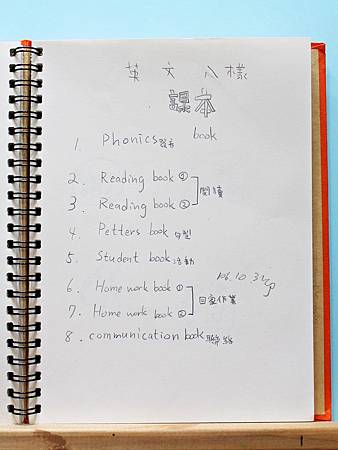 英文八樣
課本
1. Phonics 發音 book
2. Reading book ①
閱讀
3. Reading book ②
4. Petters book 句型
5. Student book 活動
106.10.3
6. Home work book ①
回家作業
7. Home work book ②
8. communication book 聯絡